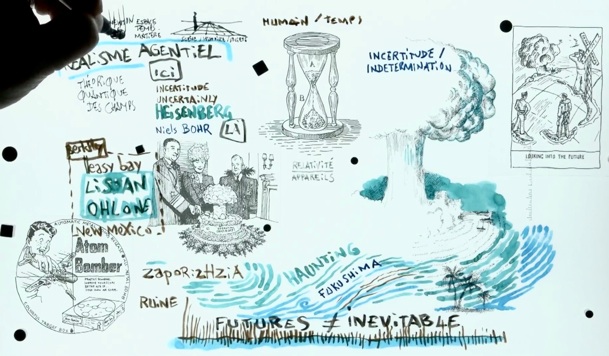 ESPACE
TEMPS
MATIÈRE
RÉALISME AGENTIEL
THÉORIQUE
QUANTIQUE
DES CHAMPS
ICI
INCERTITUDE
UNCERTAINLY
HEISENBERG
NIELS BOHR
LÀ
HUMAIN / TEMPS
A
B
RELATIVITÉ
APPAREILS
INCERTITUDE /
INDETERMINATION
LOOKING INTO THE FUTURE
Berkeley
easy bay
LISJAN
OHLONE
NEW MEXICO
Atom
Bomber
ZAPORIZHZIA
HAUNTING
FUKUSHIMA
RUINE
FUTURES ≠ INEVITABLE